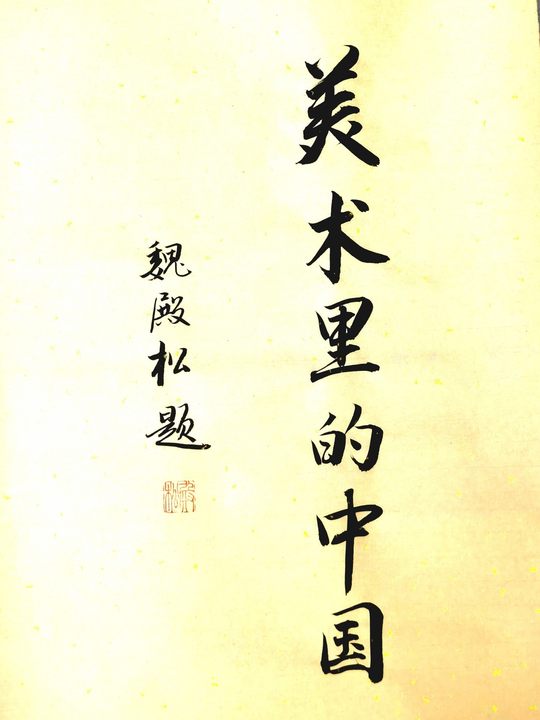 美术里的中国
魏殿松题